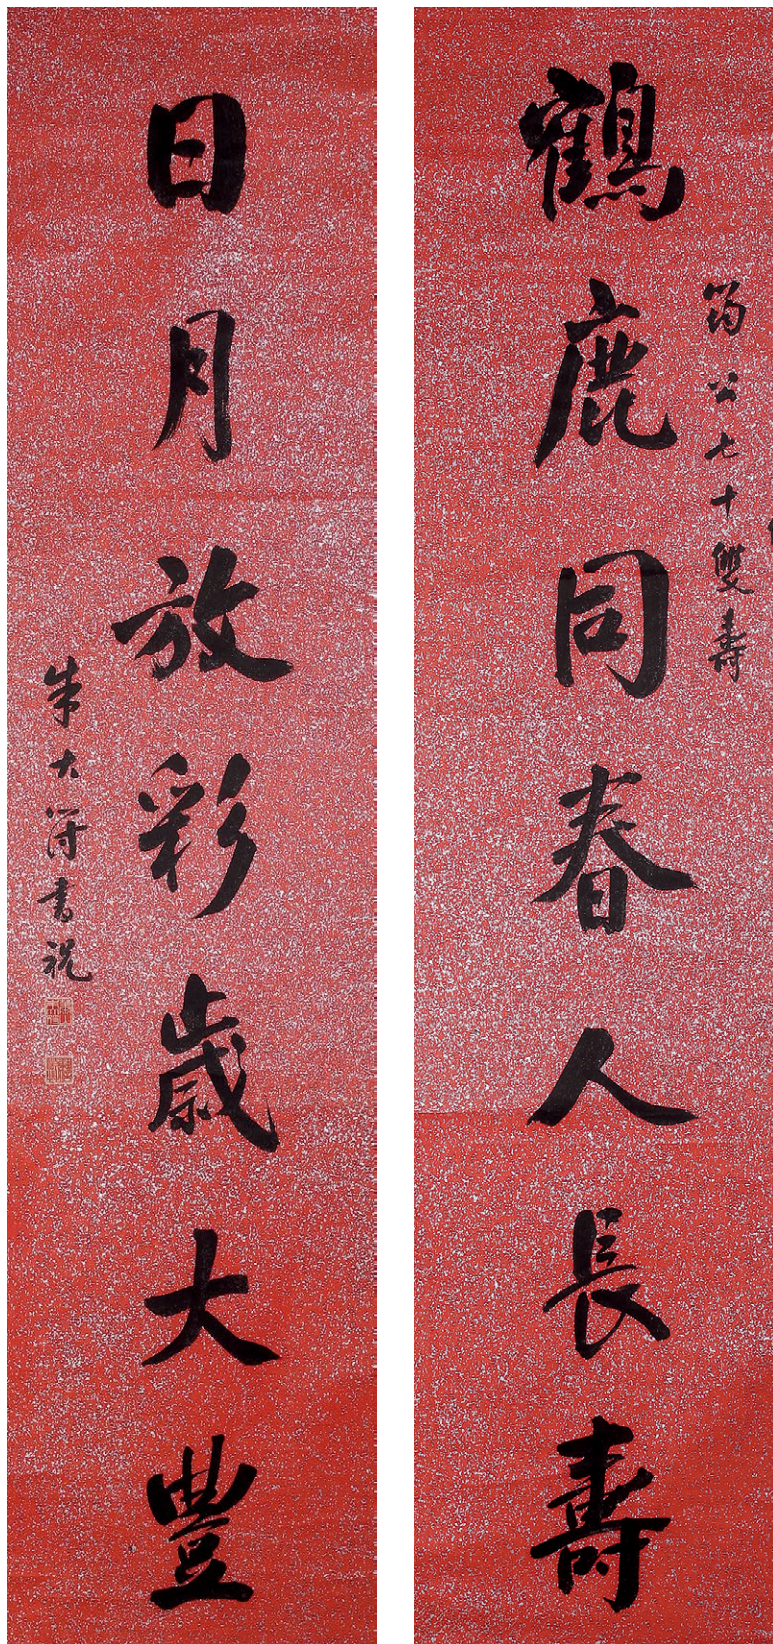 鶴鹿同春人長壽
筠公七十雙壽
日月放彩歲大豐
朱大符書祝